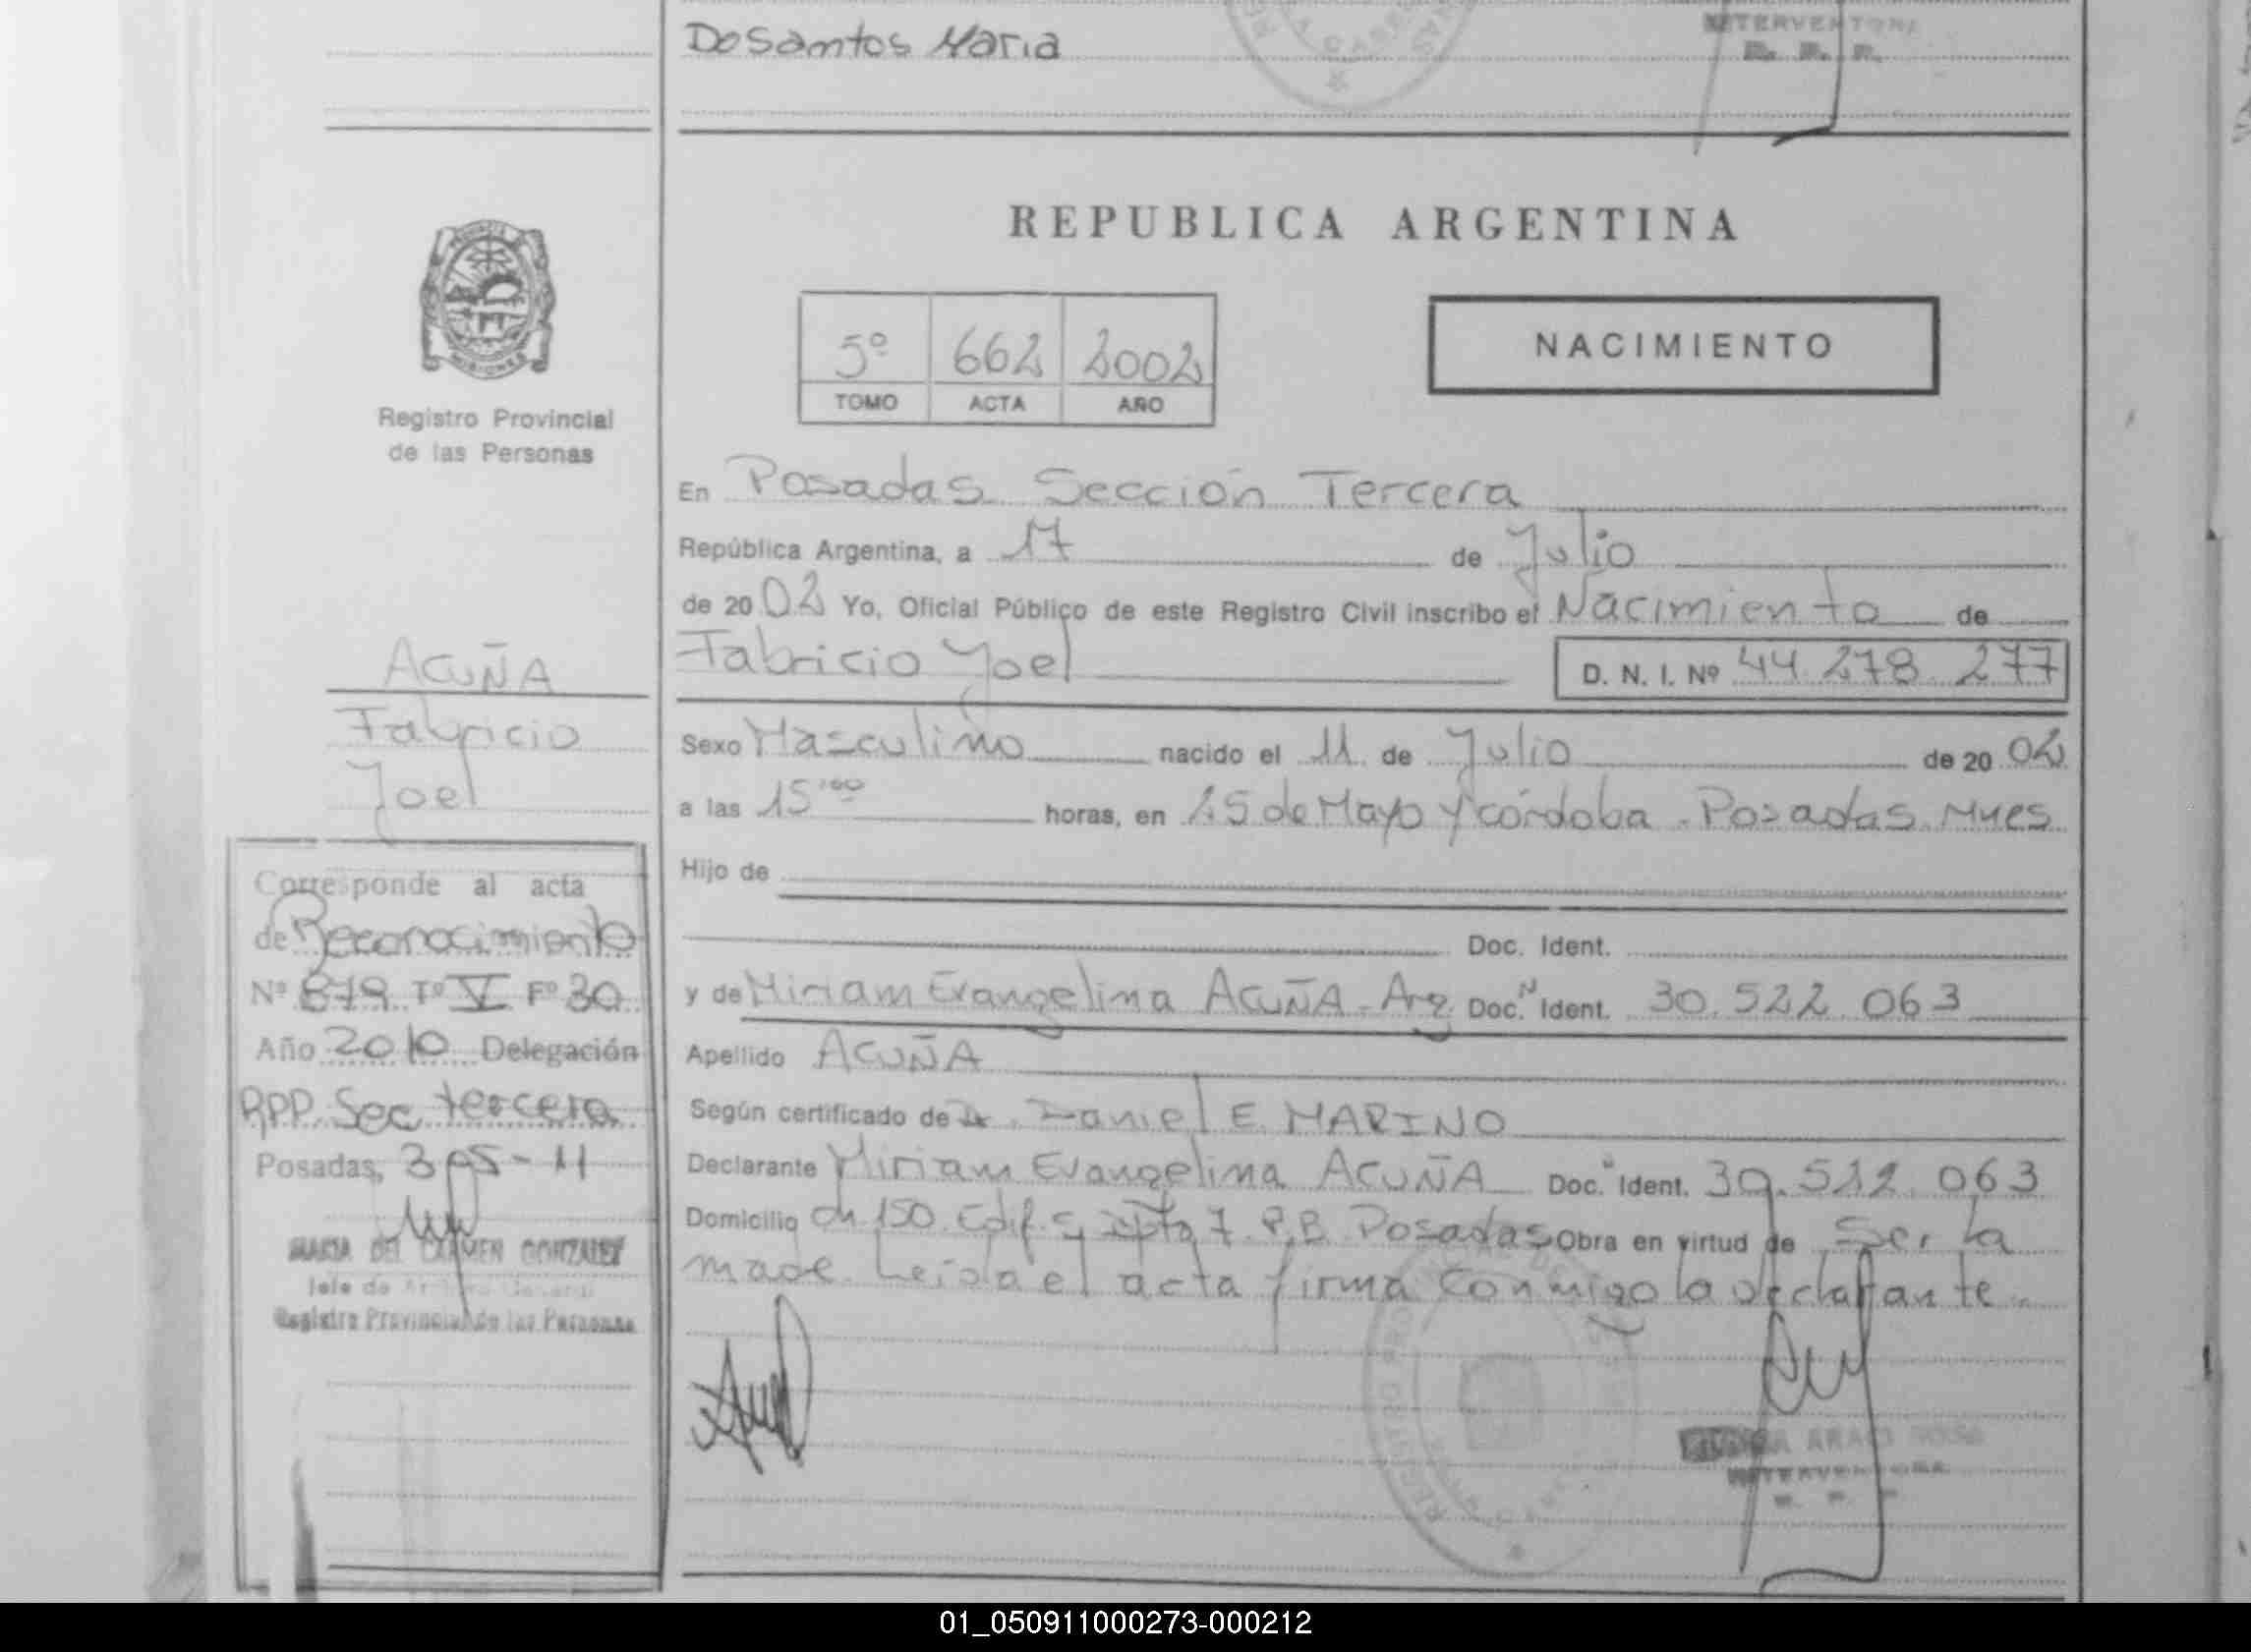 DoSantos Maria
INTERVENTORA
R. P. P.
REPUBLICA ARGENTINA
5º 662 2002
TOMO ACTA AÑO
NACIMIENTO
MISIONES
Registro Provincial
de las Personas
En Posadas Sección Tercera
República Argentina, a 17 de Julio
de 2002 Yo, Oficial Público de este Registro Civil inscribo el Nacimiento de
Fabricio Yoel D. N. I. Nº 44 278 277
ACUÑA
Fabricio
Joel
Sexo Masculino nacido el 11 de Julio de 20 02
a las 15'00 horas, en 25 de Mayo y córdoba - Posadas Mnes
Hijo de
Doc. Ident.
y de Miriam Evangelina ACUÑA - Arg Doc. N Ident. 30.522.063
Apellido ACUÑA
Según certificado de Dr. Daniel E. MARINO
Declarante Miriam Evangelina ACUÑA Doc. Ident. 30.522.063
Domicilio Ch 150 Edif. Dpto 7 P.B. Posadas Obra en virtud de Ser la
made Leida el acta firma conmigo la declarante.
Corresponde al acta
de Reconocimiento
Nº 879 Tº V Fº 30
Año 2010 Delegación
RPP. Sec. tercera
Posadas, 3 05 - 11
MARIA DEL CARMEN GONZALEZ
Jefe de Archivo General
Registro Provincial de las Personas
INTERVENTORA
01_050911000273-000212